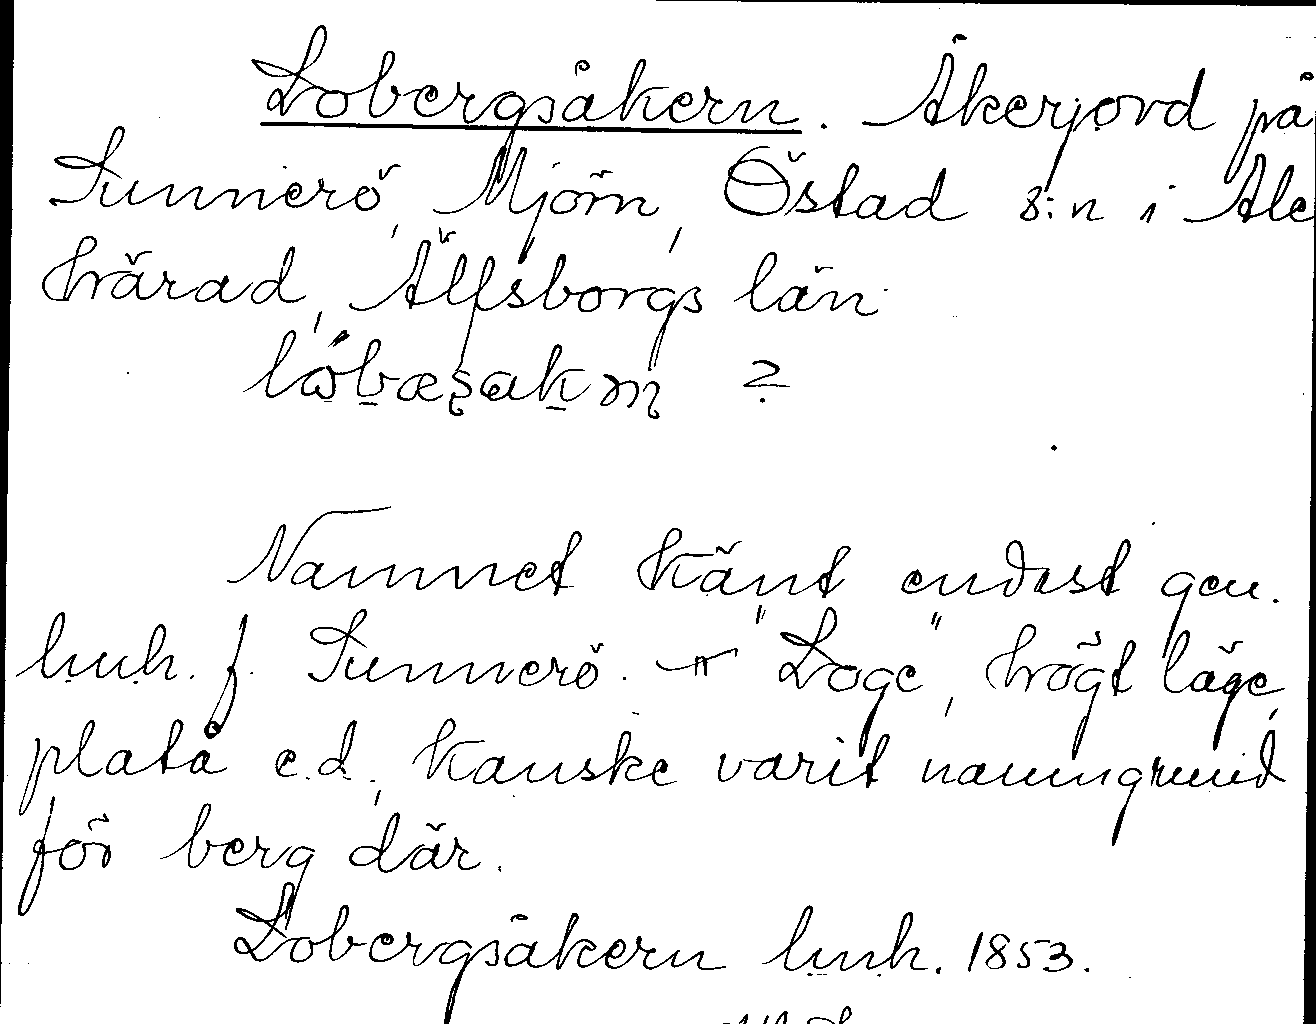 Lobergsåkern. Åkerjord på
Sunnerö, Mjörn, Östad s:n i Ale
härad, Älfsborgs län
?
Namnet känt endast gen.
lmh. f. Sunnerö. "Loge", högt läge,
platå e.d., kanske varit namngrund
för berg där.
Lobergsåkern lmh. 1853.